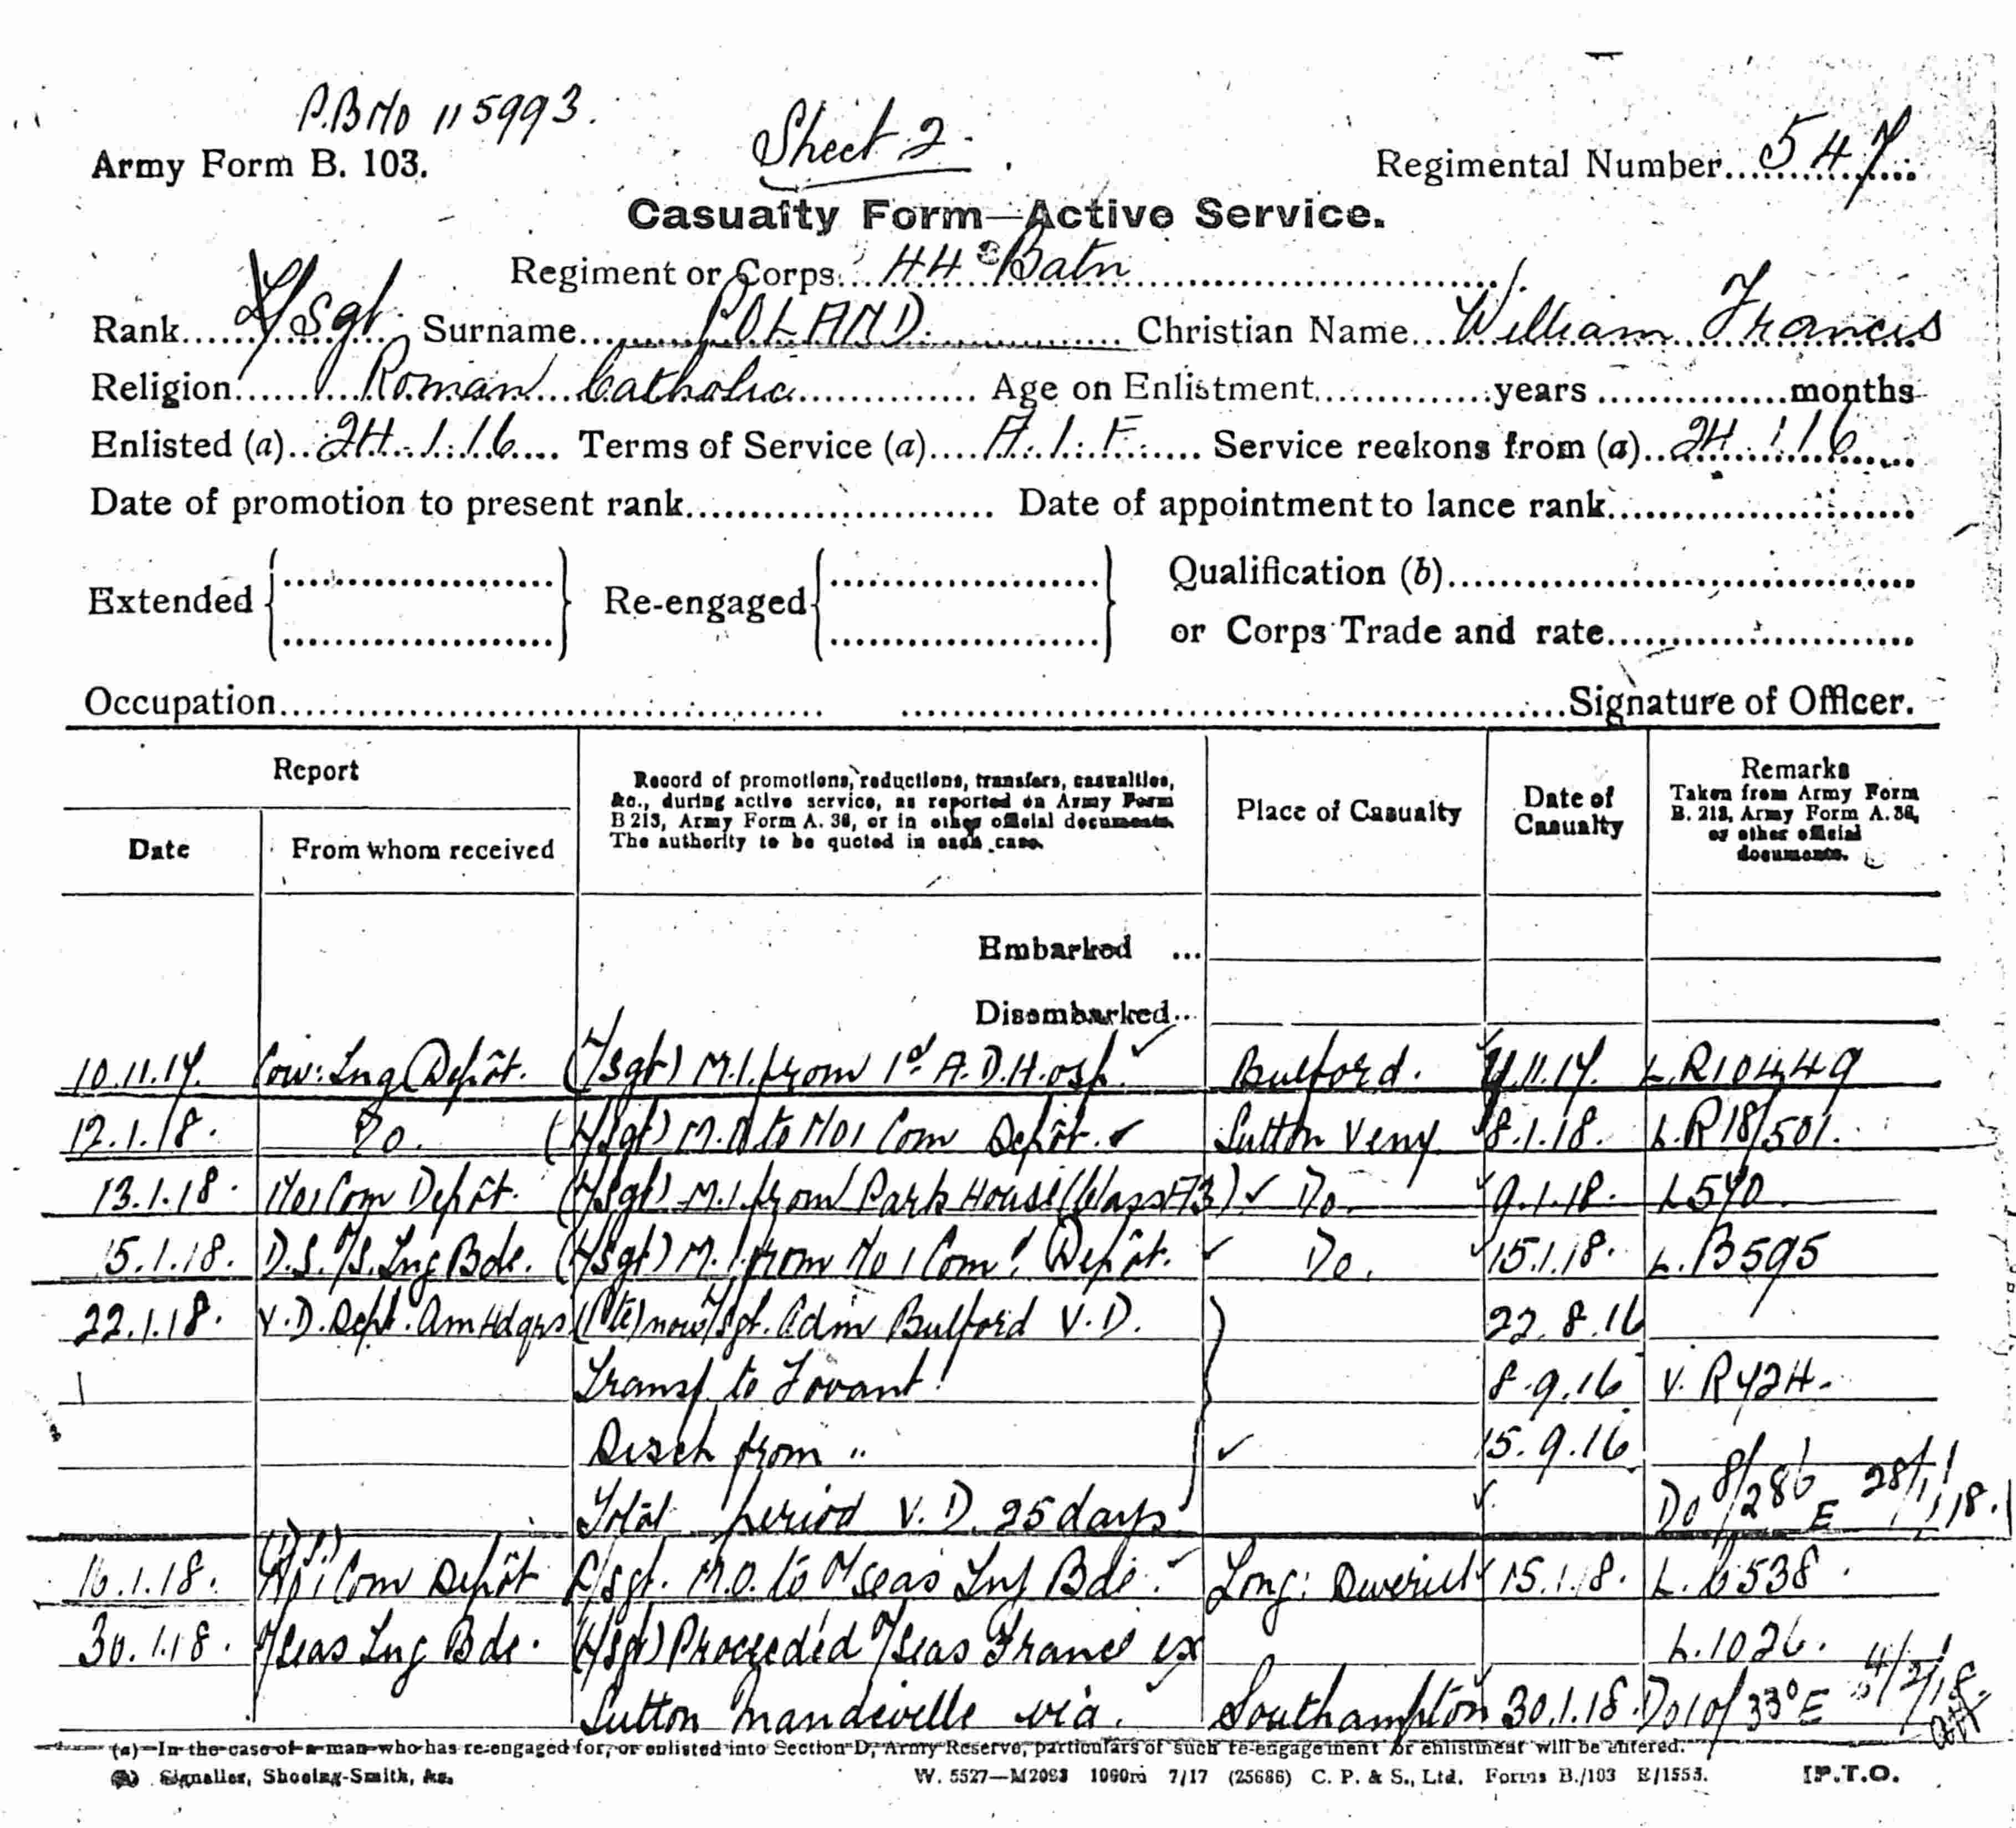 P.B No 115993.
Sheet 2.
Army Form B. 103.
Regimental Number 547
Casualty Form—Active Service.
Regiment or Corps 44 Batn
Rank L/Sgt. Surname POLAND. Christian Name William Francis
Religion Roman Catholic Age on Enlistment years months
Enlisted (a) 24.1.16 Terms of Service (a) A.I.F. Service reckons from (a) 24.1.16
Date of promotion to present rank Date of appointment to lance rank
Extended Re-engaged Qualification (b)
or Corps Trade and rate
Occupation Signature of Officer.
Report
Date From whom received
Record of promotions, reductions, transfers, casualties,
&c., during active service, as reported on Army Form
B 213, Army Form A. 36, or in other official documents.
The authority to be quoted in each case.
Place of Casualty
Date of Casualty
Remarks
Taken from Army Form
B. 213, Army Form A. 36,
or other official
documents.
Embarked ...
Disembarked...
10.11.17. Con: Tng Depôt. (L/Sgt) M.I. from 1st A.D.H.osp. Bulford. 11.17. L.R10449
12.1.18. Do. (L/Sgt) M.O to No 1 Com Depôt. Sutton Veny 8.1.18. L.R18/501.
13.1.18. No 1 Com Depôt. (L/Sgt) M.I. from Park House (Class A3) Do. 9.1.18. L590
15.1.18. D.S. O/S. Tng Bde. (L/Sgt) M.I. from No 1 Com! Depôt. Do. 15.1.18. L.B595
22.1.18. V.D. Dept. Adm Hdqrs (Pte) now L/Sgt. Adm Bulford V.D. 22.8.16
Transf. to Fovant! 8.9.16 V. R424.
Disch from " 15.9.16
Total period V.D. 25 days Do 8/286 E 28/1/18.
16.1.18. No 1 Com Depôt L/Sgt. M.O. to O/seas Tng Bde. Long: Deverill 15.1.18. L. 538.
30.1.18. O/seas Tng Bde. (L/Sgt) Proceeded O/Seas France ex L.1026.
Sutton Mandeville via. Southampton 30.1.18. Do 10/33 E 4/2/18.
(a) In the case of a man who has re-engaged for, or enlisted into Section D, Army Reserve, particulars of such re-engagement or enlistment will be entered.
(b) Signaller, Shoeing-Smith, &c. W. 5527—M2093 1000m 7/17 (25686) C. P. & S., Ltd. Forms B./103 E/1553. [P.T.O.